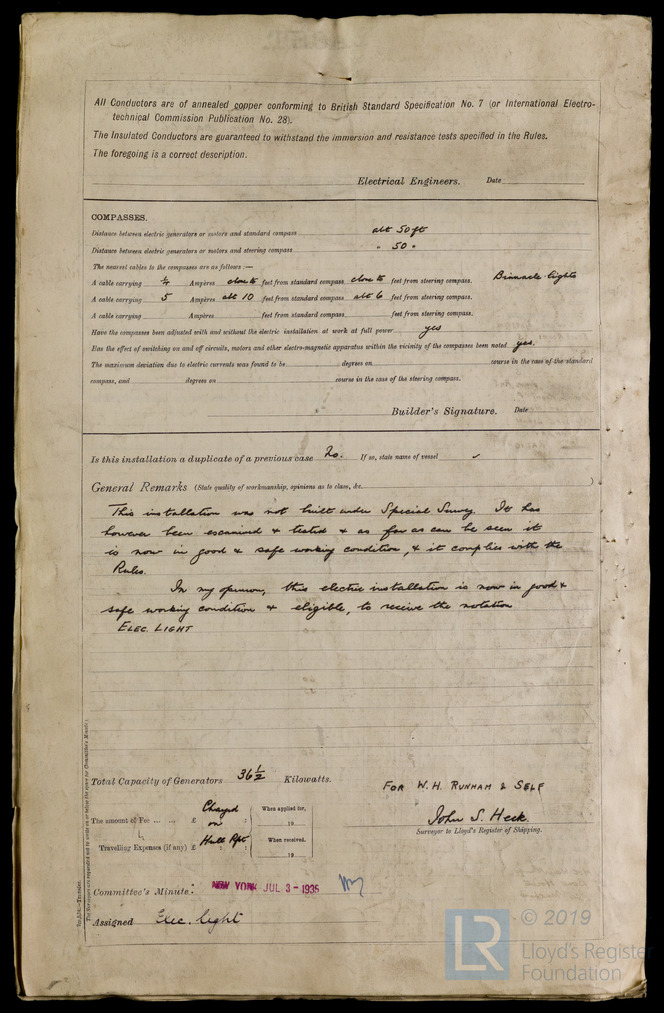 All Conductors are of annealed copper conforming to British Standard Specification No. 7 (or International Electro-
technical Commission Publication No. 28).
The Insulated Conductors are guaranteed to withstand the immersion and resistance tests specified in the Rules.
The foregoing is a correct description.
Electrical Engineers. Date
COMPASSES.
Distance between electric generators or motors and standard compass abt 50 ft
Distance between electric generators or motors and steering compass " 50 "
The nearest cables to the compasses are as follows :—
A cable carrying 1/4 Ampères close to feet from standard compass close to feet from steering compass. Binnacle lights
A cable carrying 5 Ampères abt 10 feet from standard compass abt 6 feet from steering compass.
A cable carrying Ampères feet from standard compass feet from steering compass.
Have the compasses been adjusted with and without the electric installation at work at full power yes
Has the effect of switching on and off circuits, motors and other electro-magnetic apparatus within the vicinity of the compasses been noted yes.
The maximum deviation due to electric currents was found to be degrees on course in the case of the standard
compass, and degrees on course in the case of the steering compass.
Builder's Signature. Date
Is this installation a duplicate of a previous case No. If so, state name of vessel ✓
General Remarks (State quality of workmanship, opinions as to class, &c. )
This installation was not built under Special Survey. It has
however been examined & tested & as far as can be seen it
is now in good & safe working condition, & it complies with the
Rules.
In my opinion, this electric installation is now in good &
safe working condition & eligible, to receive the notation
ELEC. LIGHT
Total Capacity of Generators 36 1/2 Kilowatts.
FOR W. H. RUNHAM & SELF
John S. Heck
Surveyor to Lloyd's Register of Shipping.
The amount of Fee ... ... £ Charged on : : When applied for, 19
Travelling Expenses (if any) £ Hull Rpt : : When received, 19
Committee's Minute: NEW YORK JUL 3 - 1935
Assigned Elec. light
© 2019
LR
Lloyd's Register
Foundation